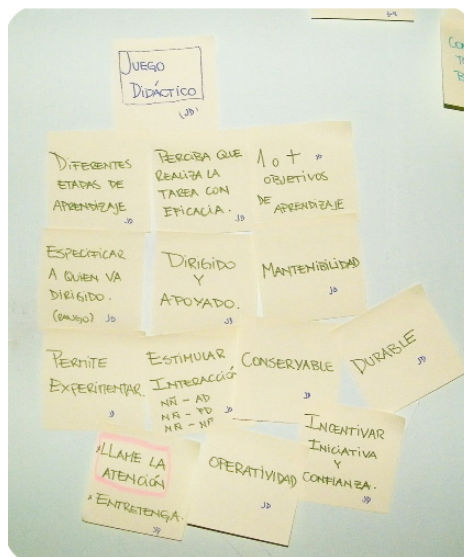 JUEGO
DIDÁCTICO
(JD)
DIFERENTES
ETAPAS DE
APRENDIZAJE
JD
PERCIBA QUE
REALIZA LA
TAREA CON
EFICACIA.
JD
1 o + JD
OBJETIVOS
DE APRENDIZAJE
ESPECIFICAR
A QUIEN VA
DIRIGIDO.
(RANGO) JD
DIRIGIDO
Y
APOYADO.
JD
MANTENIBILIDAD
JD
PERMITE
EXPERIMENTAR.
JD
ESTIMULAR
INTERACCIÓN
NÑ - AD
NÑ - PD JD
NÑ - NÑ
CONSERVABLE
JD
DURABLE
JD
*LLAME LA
ATENCIÓN
* ENTRETENGA.
JD
OPERATIVIDAD
JD
INCENTIVAR
INICIATIVA
Y
CONFIANZA.
JD